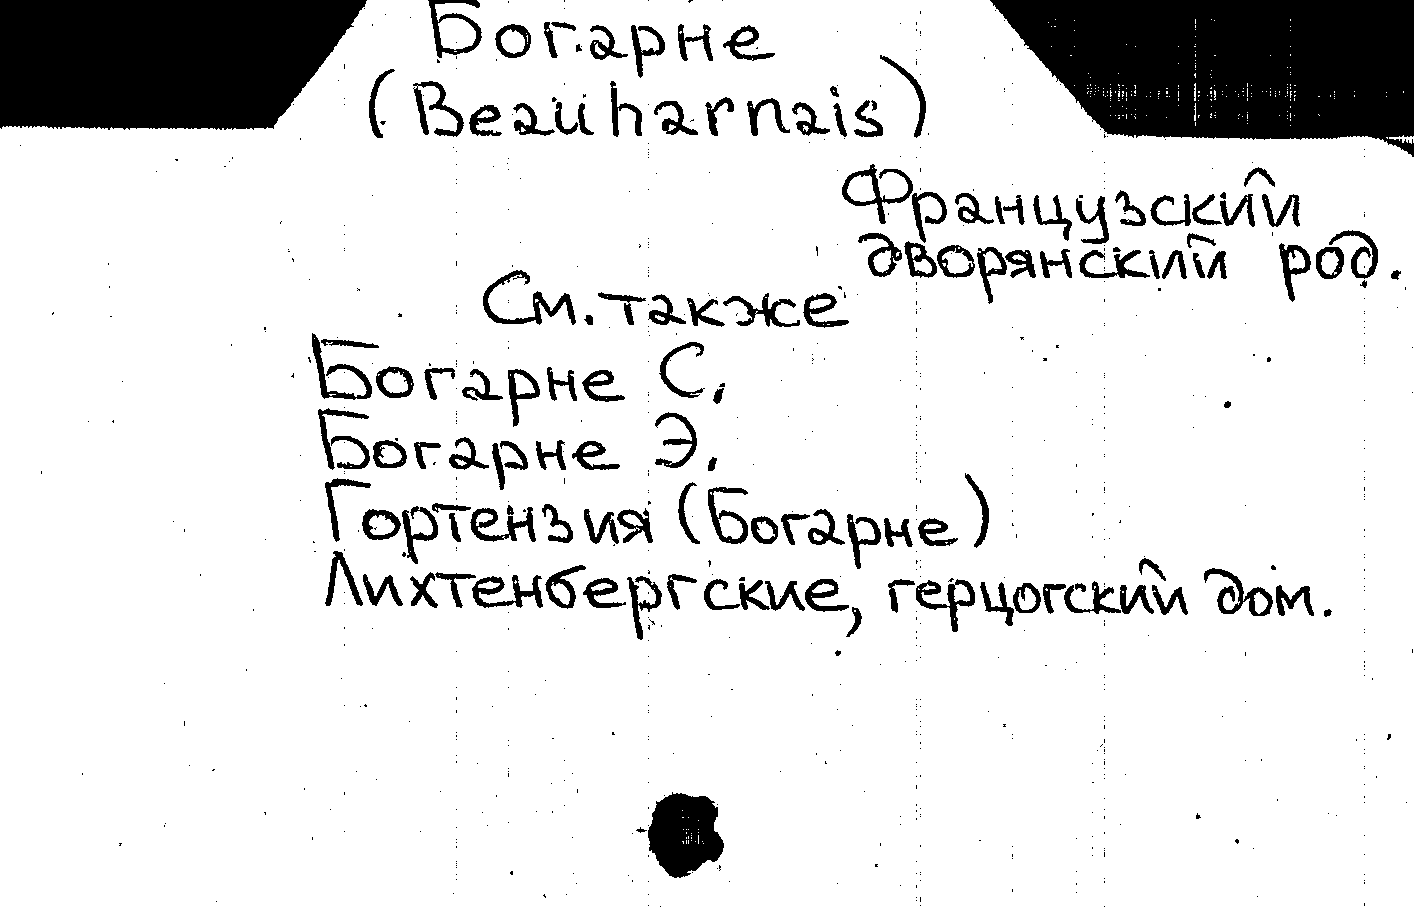 Богарне
(Beauharnais)
Французский
дворянский род.
См. также
Богарне С.
Богарне Э.
Гортензия (Богарне)
Лихтенбергские, герцогский дом.